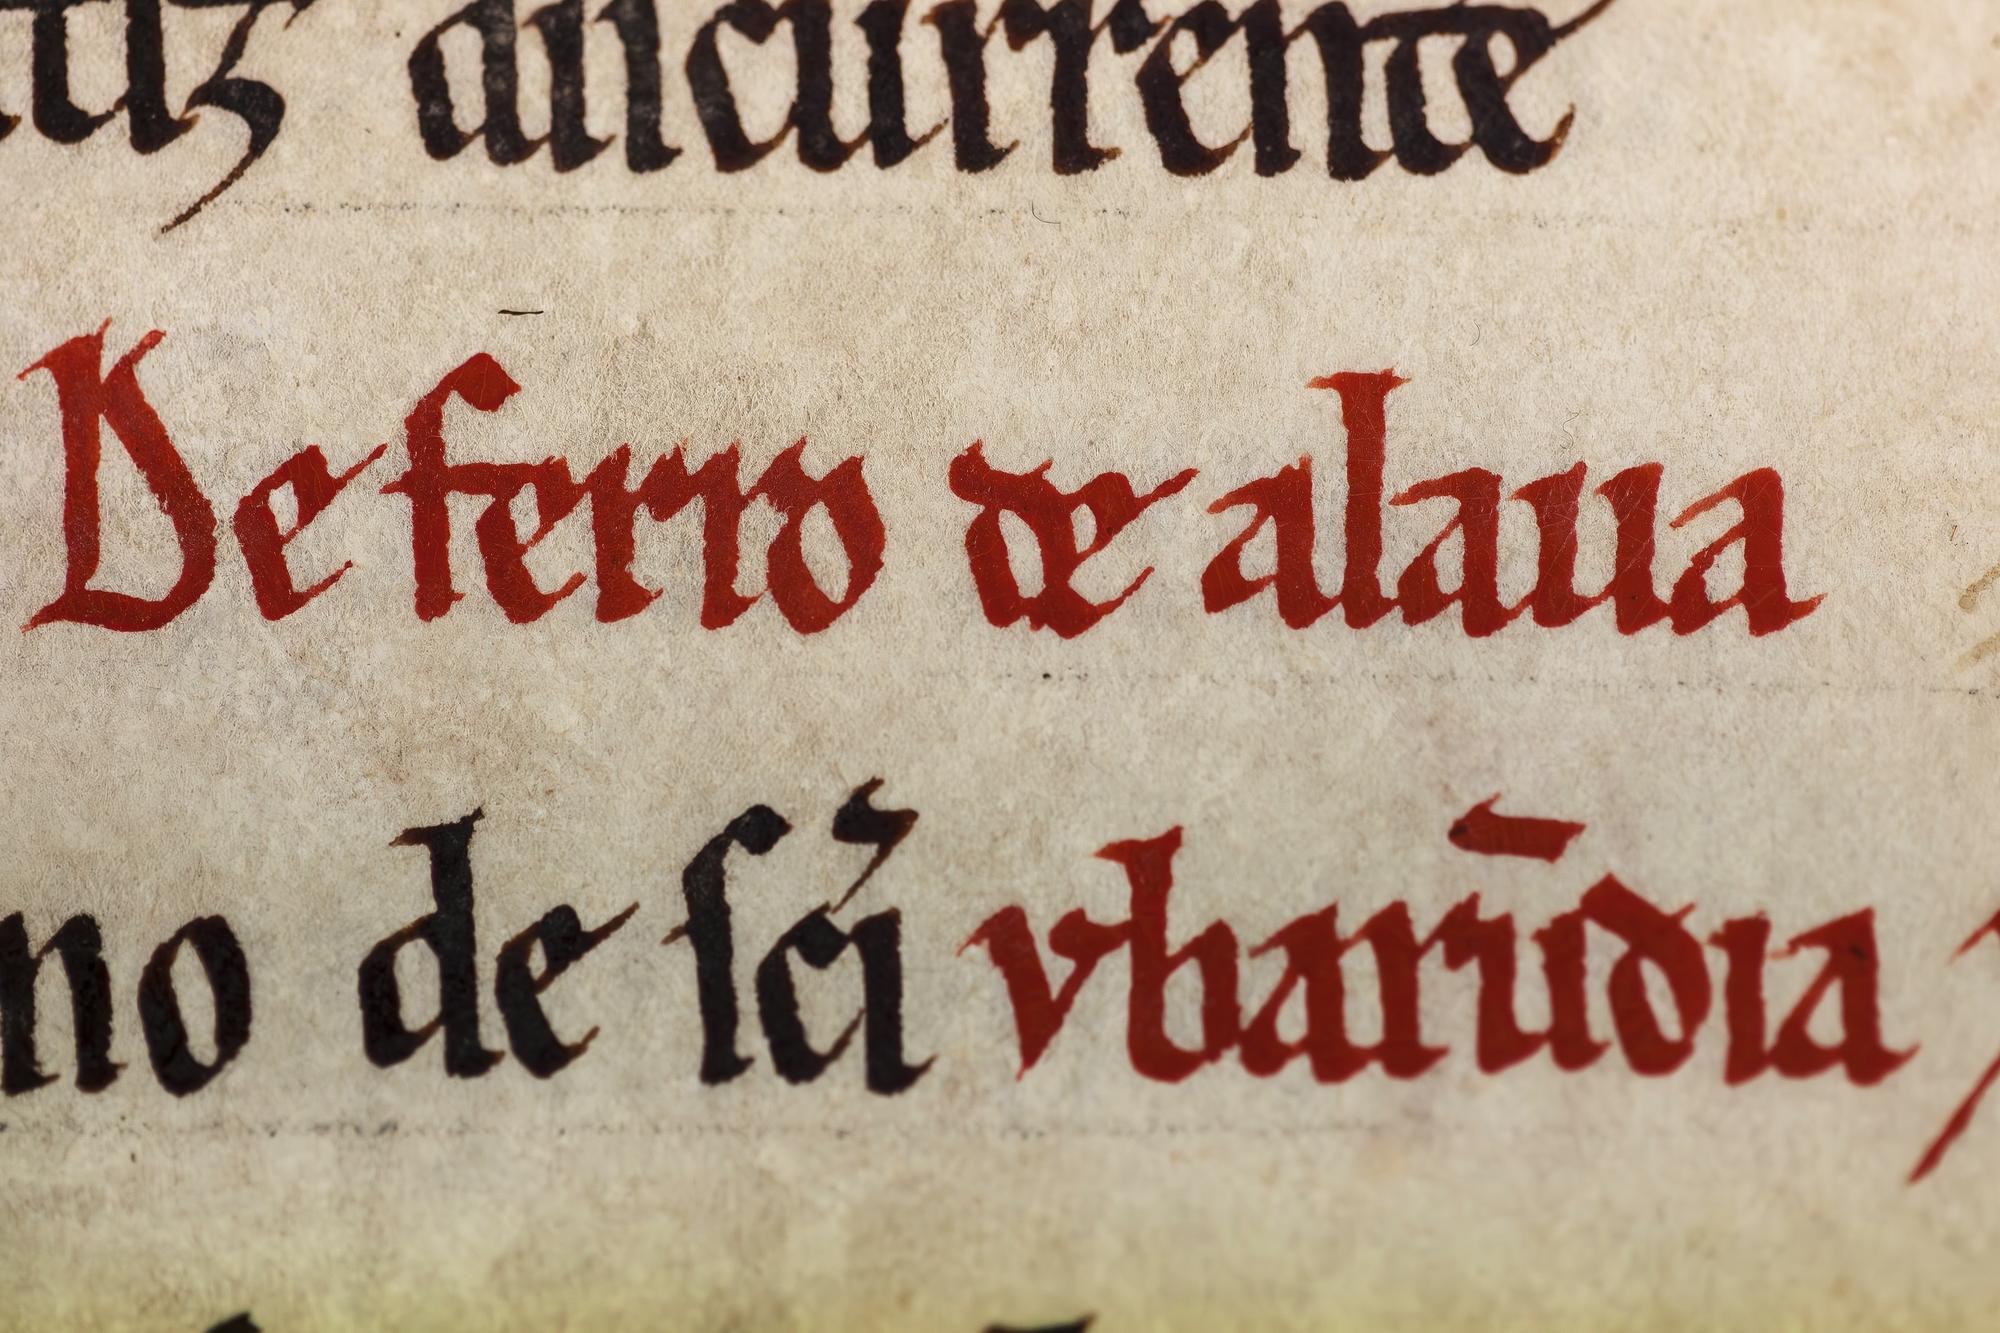 ancurrente
De ferro de alaua
no de sci vbarūdia